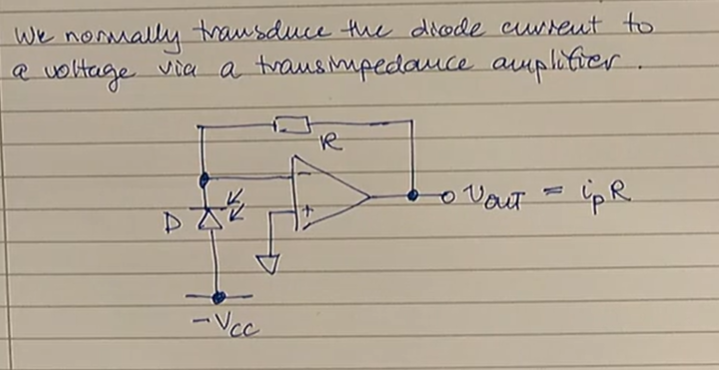 We normally transduce the diode current to
a voltage via a transimpedance amplifier.
R
-
+
D
VOUT = ipR
-Vcc